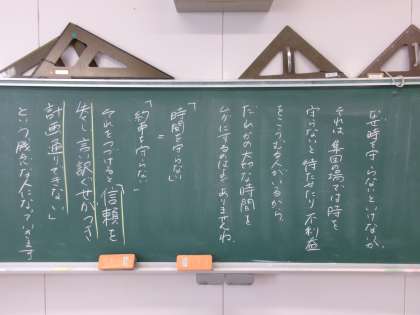 なぜ時を守らないといけないか
それは集団の場では時を
守らないと待たせたり不利益
をこうむる人がいるから
だれかの大切な時間を
ムダにするのはもありませんね
「時間を守らない」
=
「約束を守らない」
それをつづけると「信頼を
失くし言い訳ぐせがつき
計画通りできない」
という残念な人になっていきます